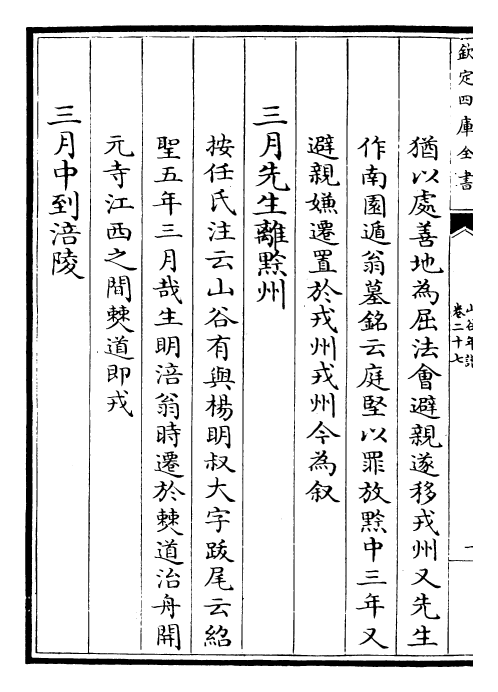 欽定四庫全書
山谷年譜
卷二十七
猶以處善地為屈法㑹避親遂移戎州又先生
作南園遁翁墓銘云庭堅以罪放黥中三年又
避親嫌遷置於戎州戎州今為叙
三月先生離黥州
按任氏注云山谷有與楊明叔大字跋尾云紹
聖五年三月哉生明涪翁時遷於僰道治舟開
元寺江西之閒僰道即戎
三月中到涪陵